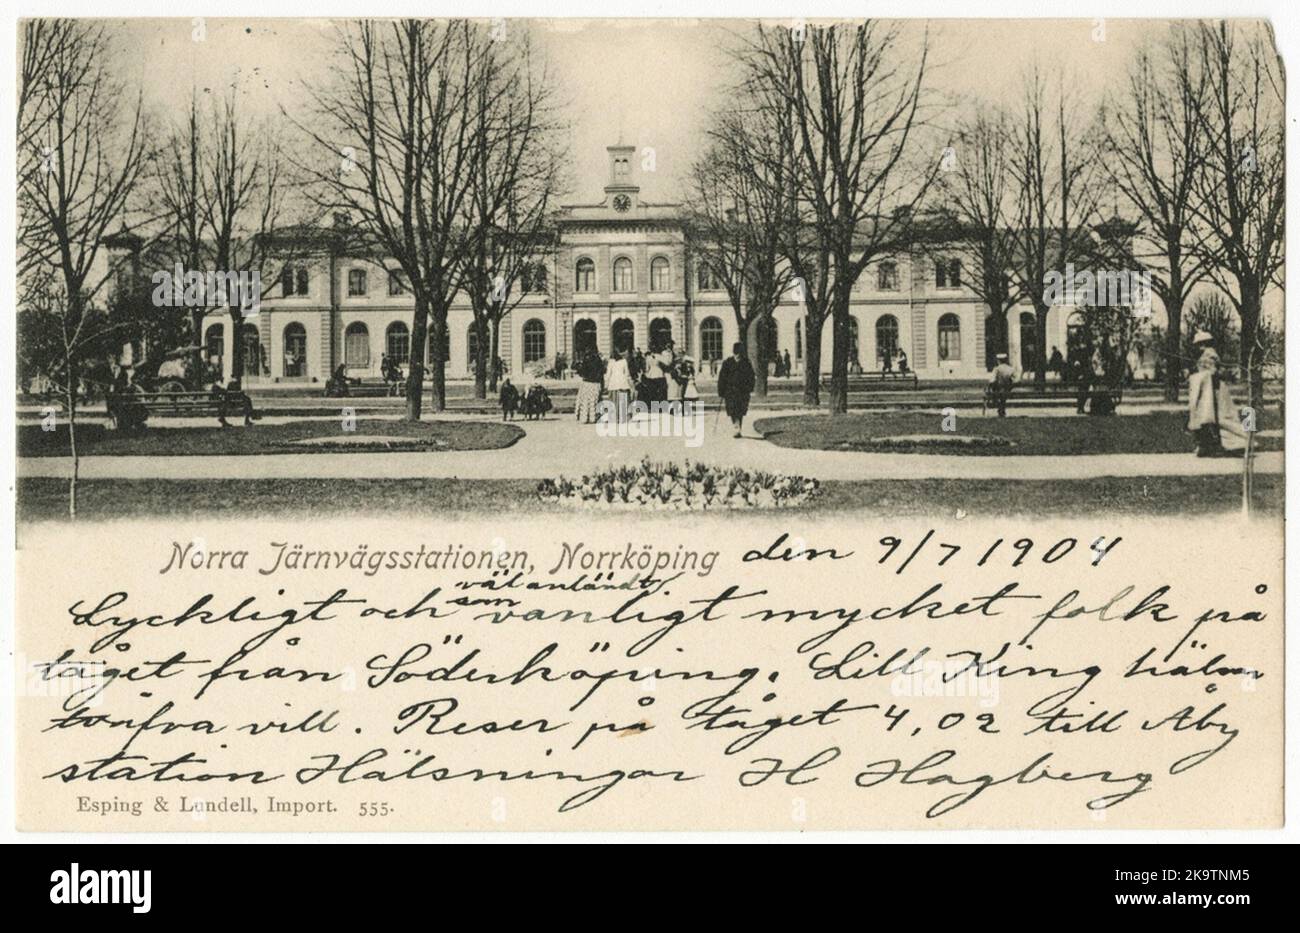 Norra Järnvägsstationen, Norrköping den 9/7 1904
väl anländt
Lyckligt och som vanligt mycket folk på
tåget från Söderköping. Lill King
vill. Reser på tåget 4,02 till Åby
station Hälsningar H Hagberg
Esping & Lundell, Import. 555.
alamy
Image ID: 2K9TNM5
www.alamy.com